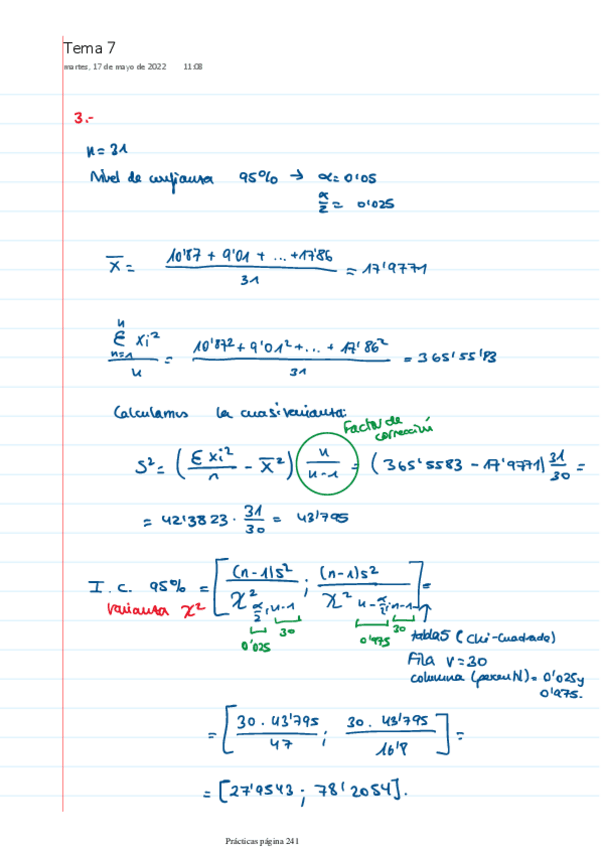 Tema 7
martes, 17 de mayo de 2022 11:08
3.-
n = 31
Nivel de confianza 95% → α = 0'05
α/2 = 0'025
x̄ = (10'87 + 9'01 + ... + 17'86) / 31 = 17'9771
Σ (n, n=1) xi² / n = (10'87² + 9'01² + ... + 17'86²) / 31 = 365'5583
Calculamos la cuasivarianza:
Factor de corrección
S² = (Σxi²/n - x̄²) (n/n-1) = (365'5583 - 17'9771) 31/30 =
= 42'3823 · 31/30 = 43'795
I.C. 95% = [(n-1)S² / χ² α/2, n-1 ; (n-1)S² / χ² 1-α/2, n-1] =
varianza χ²
0'025 30 0'975 30
tabla 5 (Chi-cuadrado)
Fila v = 30
columna = 0'025 y
0'975.
= [30 · 43'795 / 47 ; 30 · 43'795 / 16'8] =
= [27'9543 ; 78'2054].
Prácticas página 241